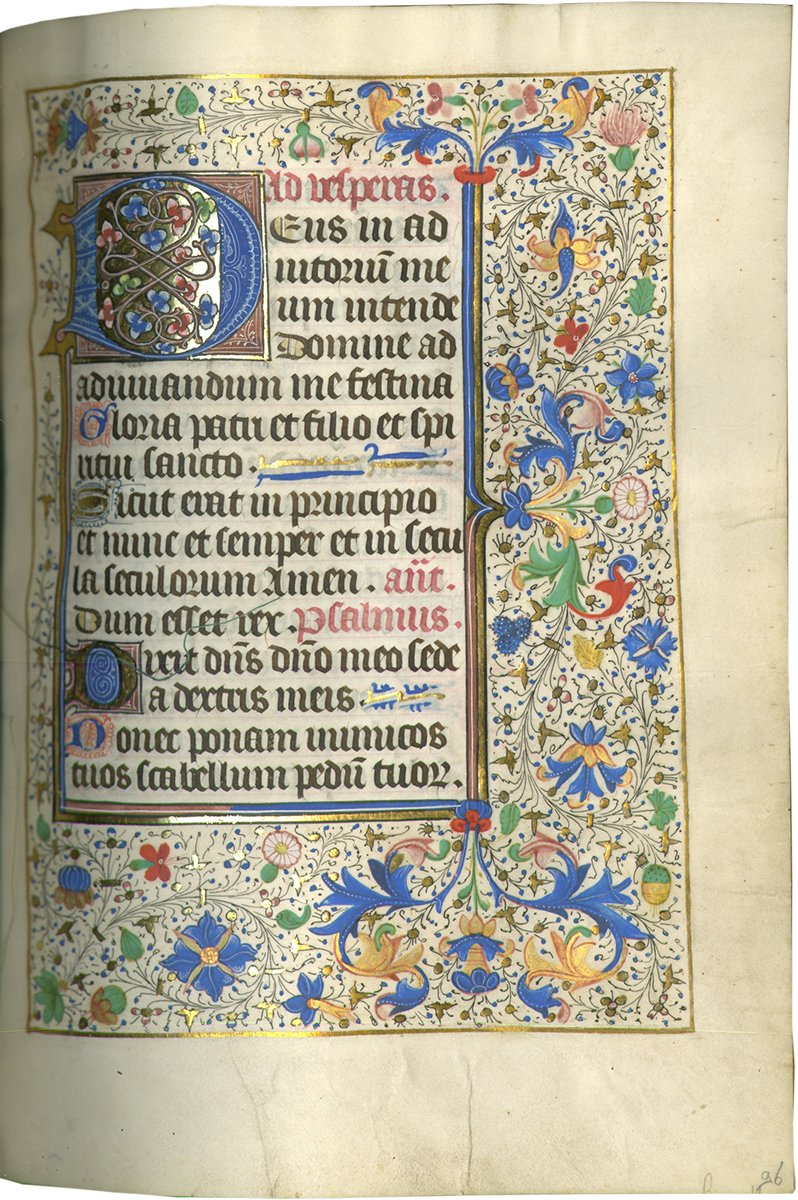 Ad vesperas.
DEus in ad
iutoriū me
um intende
Domine ad
adiuuandum me festina
Gloria patri et filio et spi
ritui sancto.
Sicut erat in principio
et nunc et semper et in secu
la seculorum Amen. añt.
Dum esset rex. Psalmus.
Dixit dñs dño meo sede
a dextris meis.
Donec ponam inimicos
tuos scabellum pedū tuoꝝ.
96